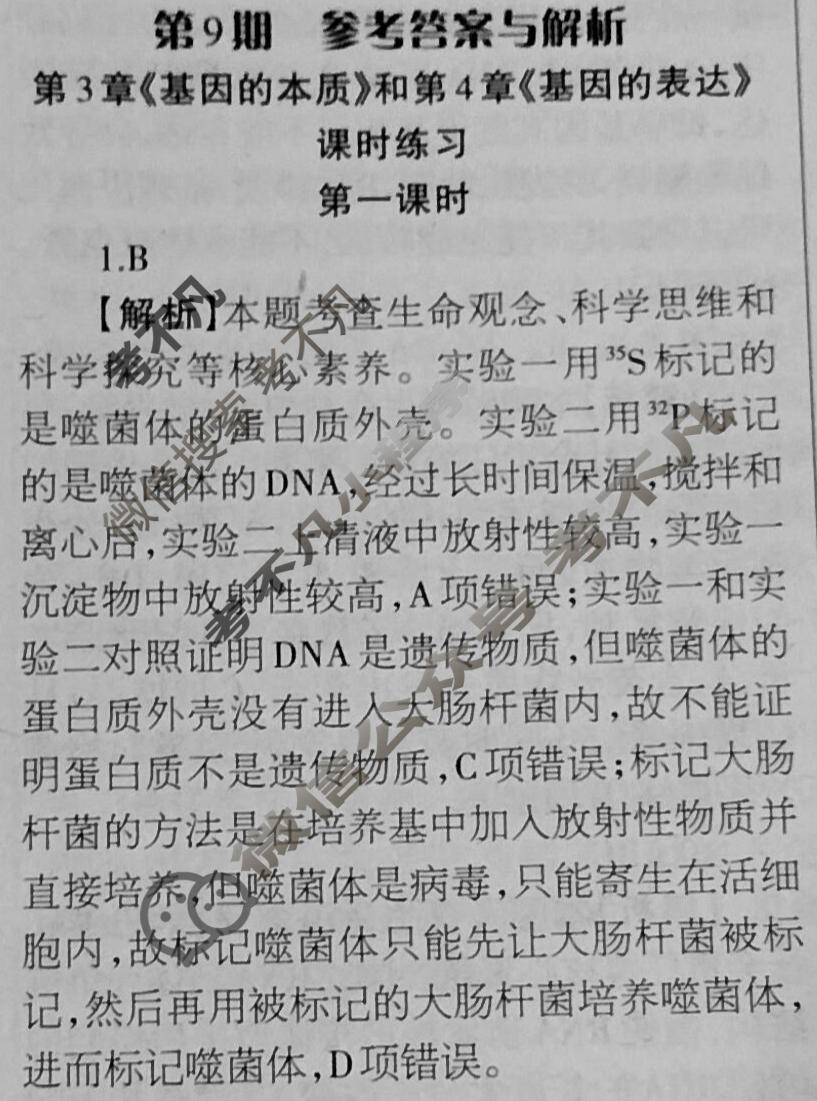 第9期 参考答案与解析
第3章《基因的本质》和第4章《基因的表达》
课时练习
第一课时
1.B
【解析】本题考查生命观念、科学思维和
科学探究等核心素养。实验一用³⁵S标记的
是噬菌体的蛋白质外壳。实验二用³²P标记
的是噬菌体的DNA,经过长时间保温,搅拌和
离心后,实验二上清液中放射性较高,实验一
沉淀物中放射性较高,A项错误;实验一和实
验二对照证明DNA是遗传物质,但噬菌体的
蛋白质外壳没有进入大肠杆菌内,故不能证
明蛋白质不是遗传物质,C项错误;标记大肠
杆菌的方法是在培养基中加入放射性物质并
直接培养,但噬菌体是病毒,只能寄生在活细
胞内,故标记噬菌体只能先让大肠杆菌被标
记,然后再用被标记的大肠杆菌培养噬菌体,
进而标记噬菌体,D项错误。
考不凡
微信搜索 考不凡
考不凡小程序
微信公众号 考不凡